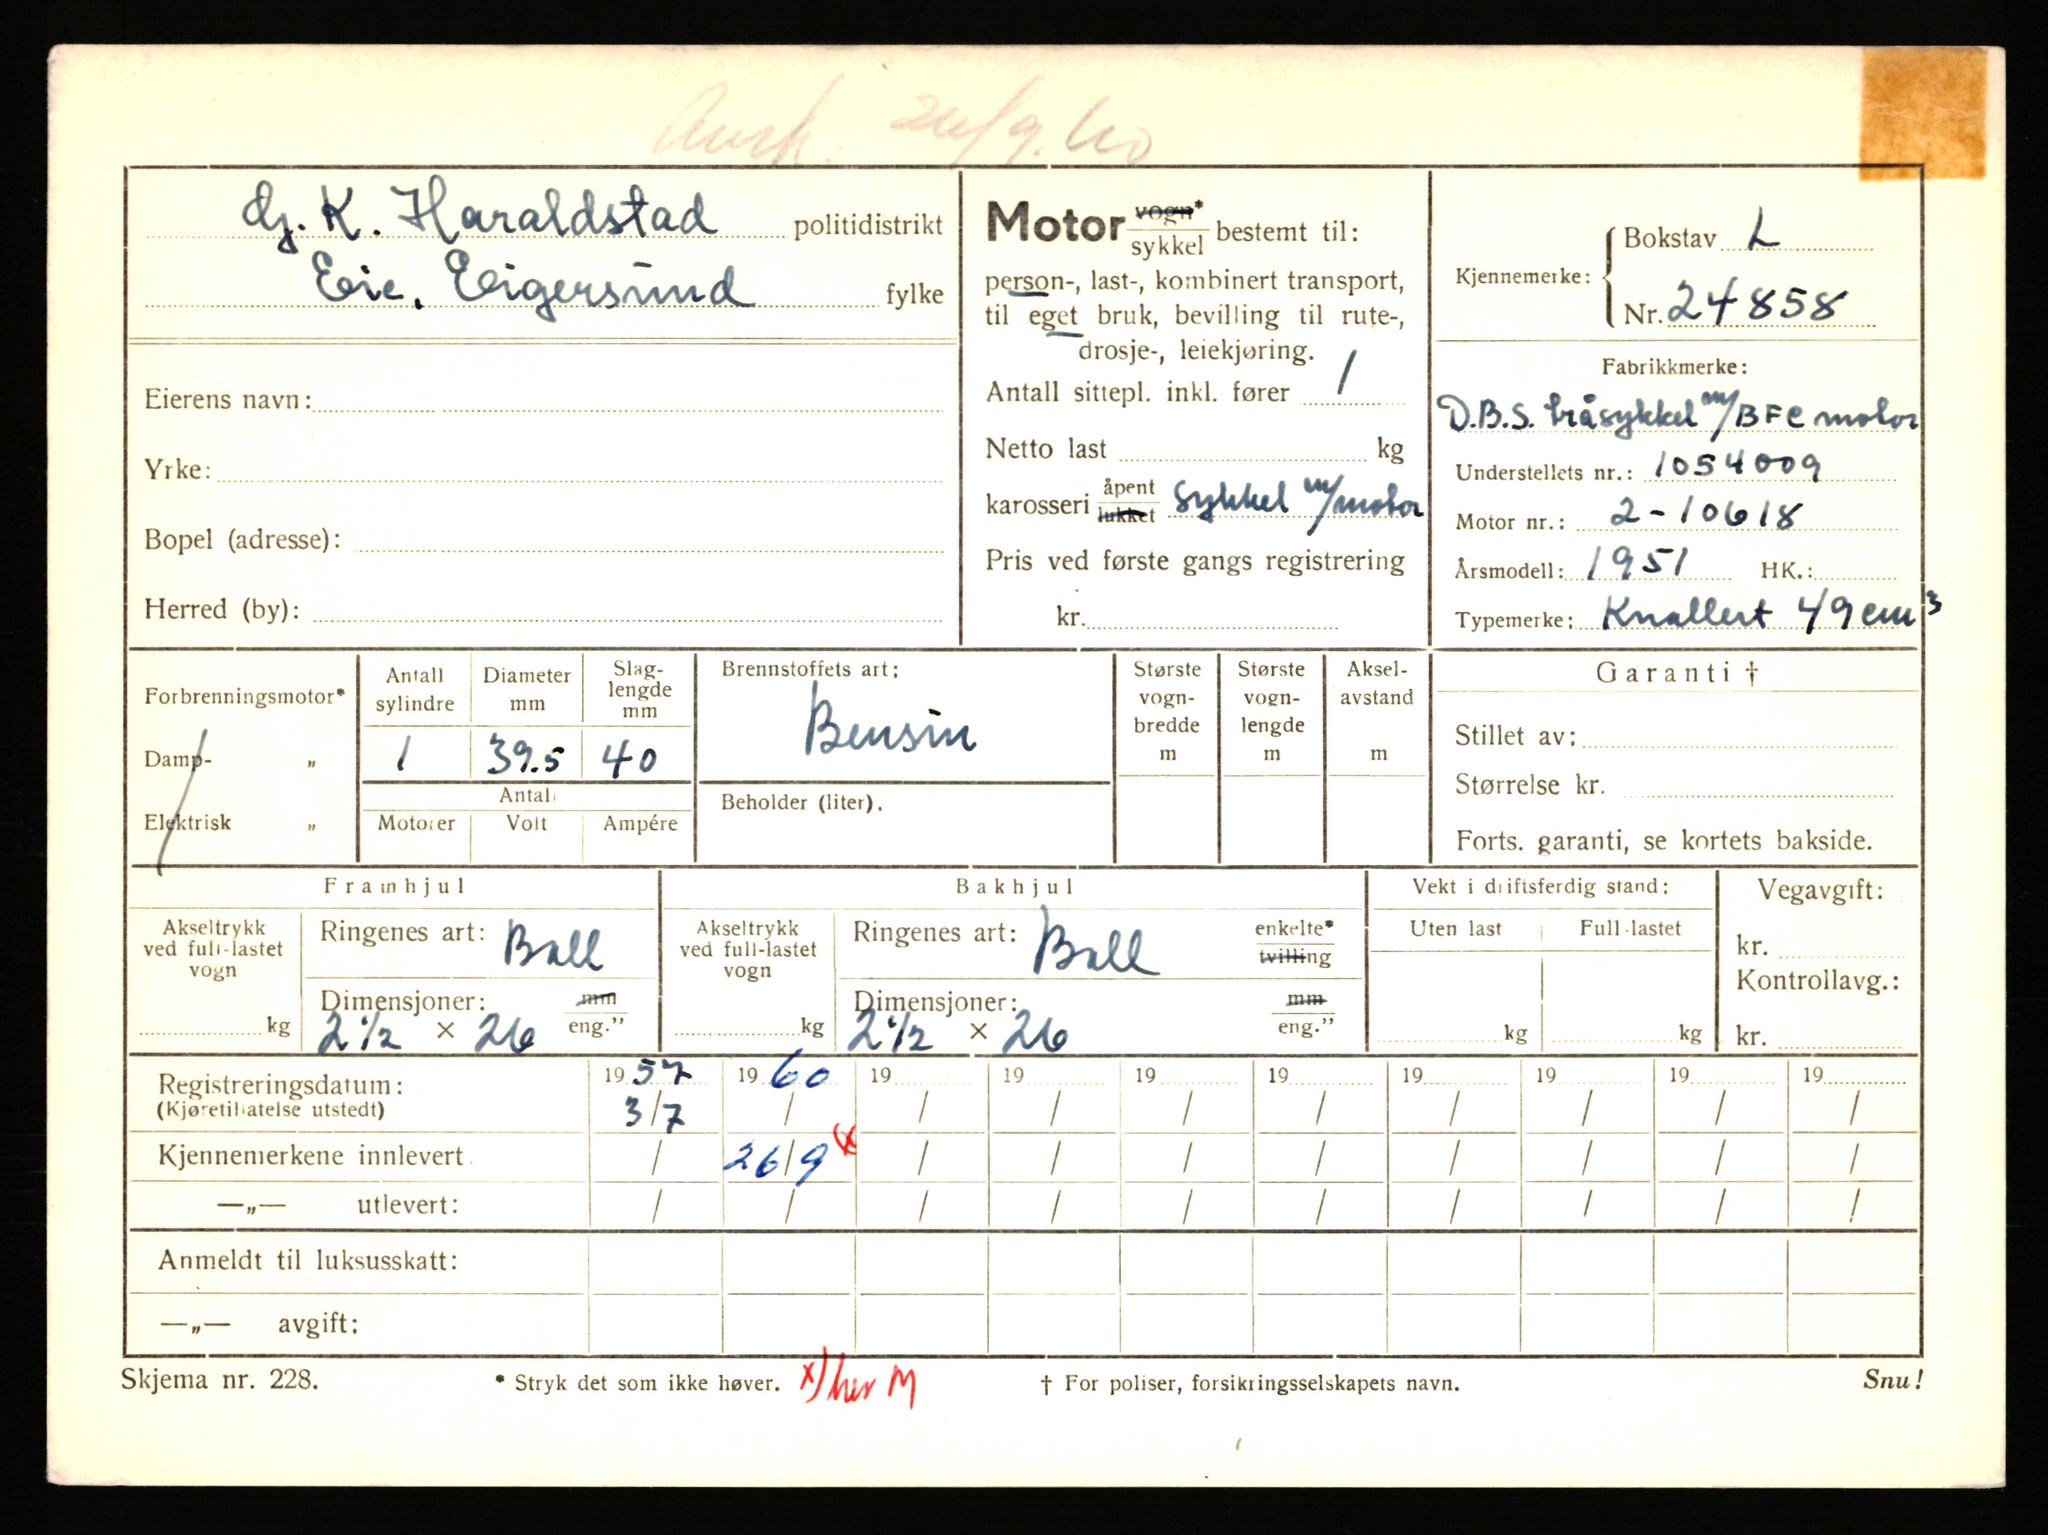 Avsk. 26/9.60
Gj. K. Haraldstad politidistrikt
Eie, Eigersund fylke
Eierens navn:
Yrke:
Bopel (adresse):
Herred (by):
Motor vogn* sykkel bestemt til:
person-, last-, kombinert transport,
til eget bruk, bevilling til rute-,
drosje-, leiekjøring.
Antall sittepl. inkl. fører 1
Netto last kg
karosseri åpent lukket Sykkel m/motor
Pris ved første gangs registrering
kr.
Kjennemerke: Bokstav L
Nr. 24858
Fabrikkmerke:
D.B.S. tråsykkel m/BFC motor
Understellets nr.: 1054009
Motor nr.: 2-10618
Årsmodell: 1951 HK.:
Typemerke: Knallert 49 cm³
Forbrenningsmotor*
Damp- „
Elektrisk „
Antall sylindre
Diameter mm
Slag-lengde mm
1 39.5 40
Antall
Motorer Volt Ampére
Brennstoffets art:
Bensin
Beholder (liter).
Største vogn-bredde m
Største vogn-lengde m
Aksel-avstand m
Garanti †
Stillet av:
Størrelse kr.
Forts. garanti, se kortets bakside.
Framhjul
Akseltrykk ved full-lastet vogn
kg
Ringenes art: Ball
Dimensjoner: mm
2 1/2 × 26 eng.”
Bakhjul
Akseltrykk ved full-lastet vogn
kg
Ringenes art: Ball enkelte* tvilling
Dimensjoner: mm
2 1/2 × 26 eng.”
Vekt i driftsferdig stand:
Uten last Full-lastet
kg kg
Vegavgift:
kr.
Kontrollavg.:
kr.
Registreringsdatum: 1957 1960 19 19 19 19 19 19 19 19
(Kjøretillatelse utstedt) 3/7 / / / / / / / / /
Kjennemerkene innlevert / 26/9 x / / / / / / / /
—„— utlevert: / / / / / / / / / /
Anmeldt til luksusskatt:
—„— avgift:
Skjema nr. 228. * Stryk det som ikke høver. x) her M † For poliser, forsikringsselskapets navn. Snu!